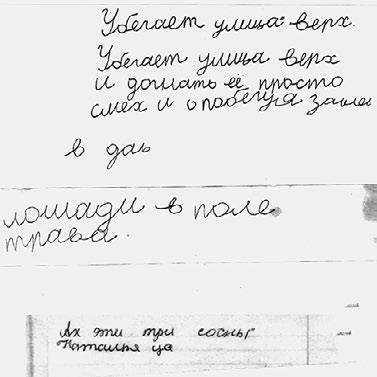 Убегает улица верх.
Убегает улица верх
и догнать её просто
смех и
в даь
лошади в поле
трава.
Ах эти три сосны
Наталья ца